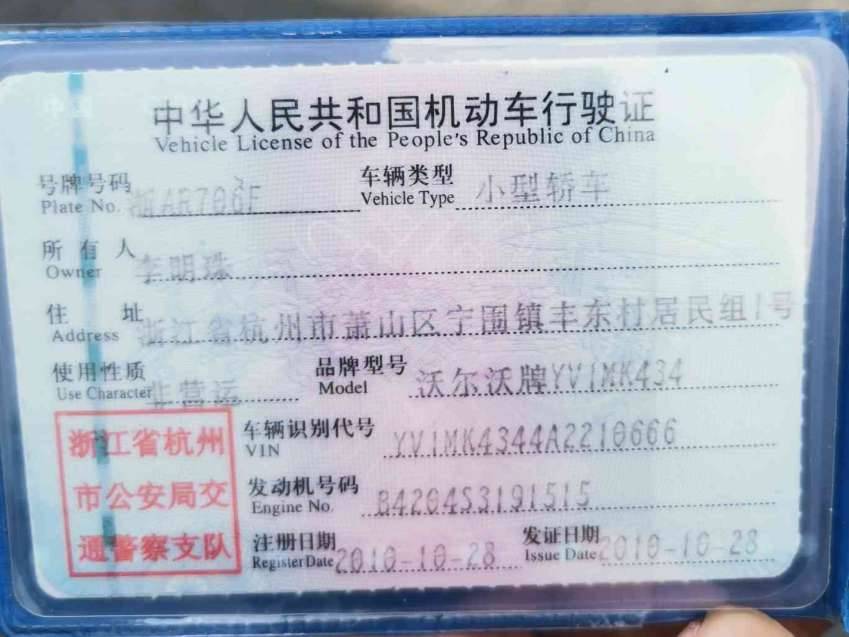 中华人民共和国机动车行驶证
Vehicle License of the People's Republic of China
号牌号码 浙AR706F 车辆类型 小型轿车
Plate No. Vehicle Type
所有人 李明珠
Owner
住址 浙江省杭州市萧山区宁围镇丰东村居民组1号
Address
使用性质 非营运 品牌型号 沃尔沃牌YV1MK434
Use Character Model
浙江省杭州
市公安局交
通警察支队
车辆识别代号 YV1MK4344A2210666
VIN
发动机号码 B4204S3191515
Engine No.
注册日期 2010-10-28 发证日期 2010-10-28
Register Date Issue Date